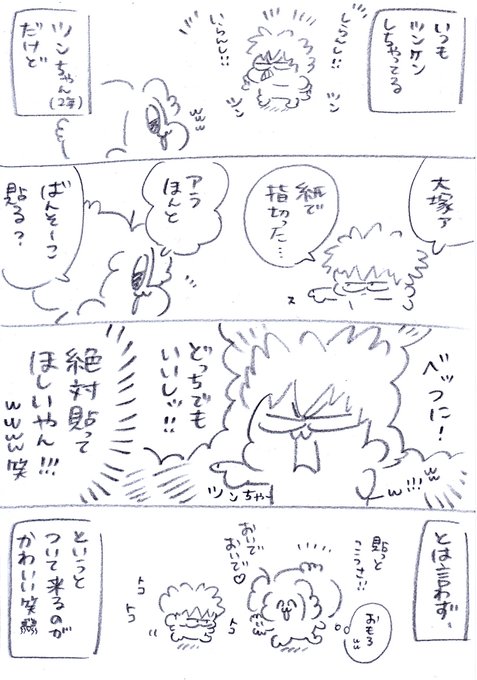 いつも
ツンケン
しちゃってる
しらんし!!
いらんし!!
ツン
ツン
ツンちゃん
(2年)
だけど
www
大塚ァ
紙で
指切った…
ス
アラ
ほんと
ばんそーこ
貼る?
ベッつに!
どっちでも
いいしッ!!
ツンちゃん
絶対貼って
ほしいやん!!!
wwww笑
w!!!ww
とは言わず、
貼っと
こうな!!
おもろ
ww
おいで
おいで♡
トコ
トコ
トコ
というと
ついて来るのが
かわいい笑